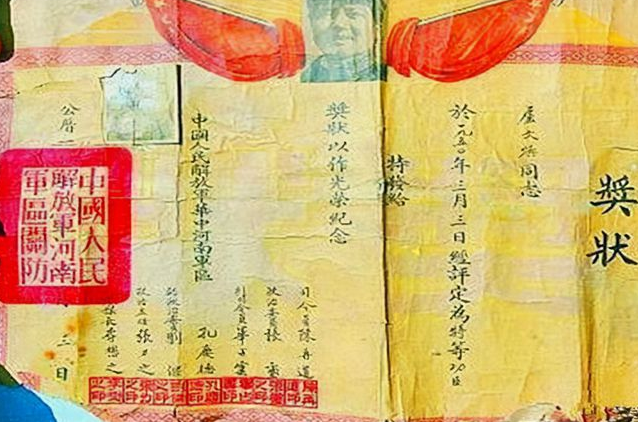 獎狀
盧文煥同志
於一九五〇年三月三日經評定為特等功臣
特發給
獎狀以作光榮紀念
中國人民解放軍華中河南軍區
司令員陳再道
政治委員張
副司令員畢占雲
孔慶德
副政治委員劉
政治主任張力之
李懋之
公曆一
三日
中國人民
解放軍河南
軍區關防